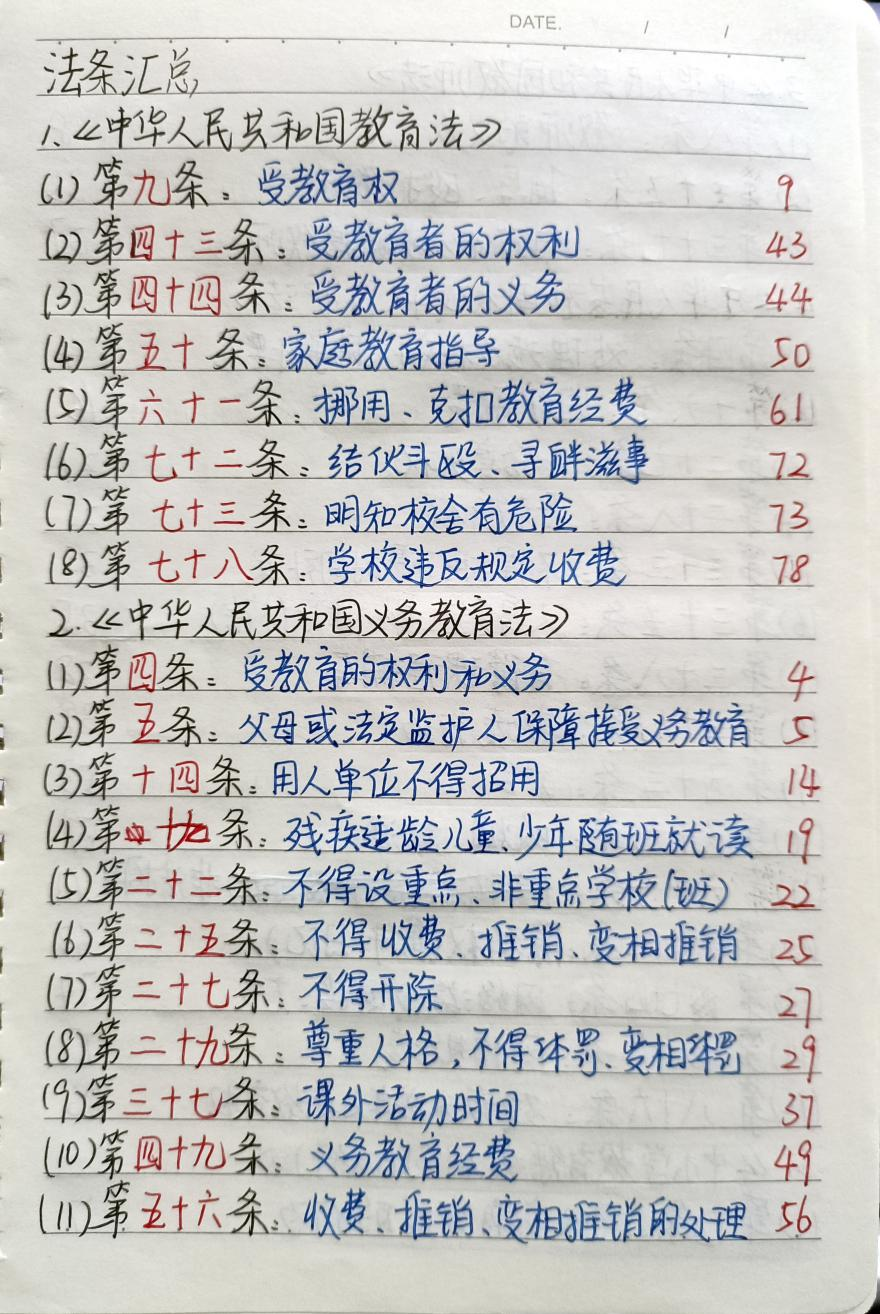 DATE. / /
法条汇总
1.《中华人民共和国教育法》
(1)第九条：受教育权 9
(2)第四十三条：受教育者的权利 43
(3)第四十四条：受教育者的义务 44
(4)第五十条：家庭教育指导 50
(5)第六十一条：挪用、克扣教育经费 61
(6)第七十二条：结伙斗殴、寻衅滋事 72
(7)第七十三条：明知校舍有危险 73
(8)第七十八条：学校违反规定收费 78
2.《中华人民共和国义务教育法》
(1)第四条：受教育的权利和义务 4
(2)第五条：父母或法定监护人保障接受义务教育 5
(3)第十四条：用人单位不得招用 14
(4)第十九条：残疾适龄儿童、少年随班就读 19
(5)第二十二条：不得设重点、非重点学校(班) 22
(6)第二十五条：不得收费、推销、变相推销 25
(7)第二十七条：不得开除 27
(8)第二十九条：尊重人格，不得体罚、变相体罚 29
(9)第三十七条：课外活动时间 37
(10)第四十九条：义务教育经费 49
(11)第五十六条：收费、推销、变相推销的处理 56